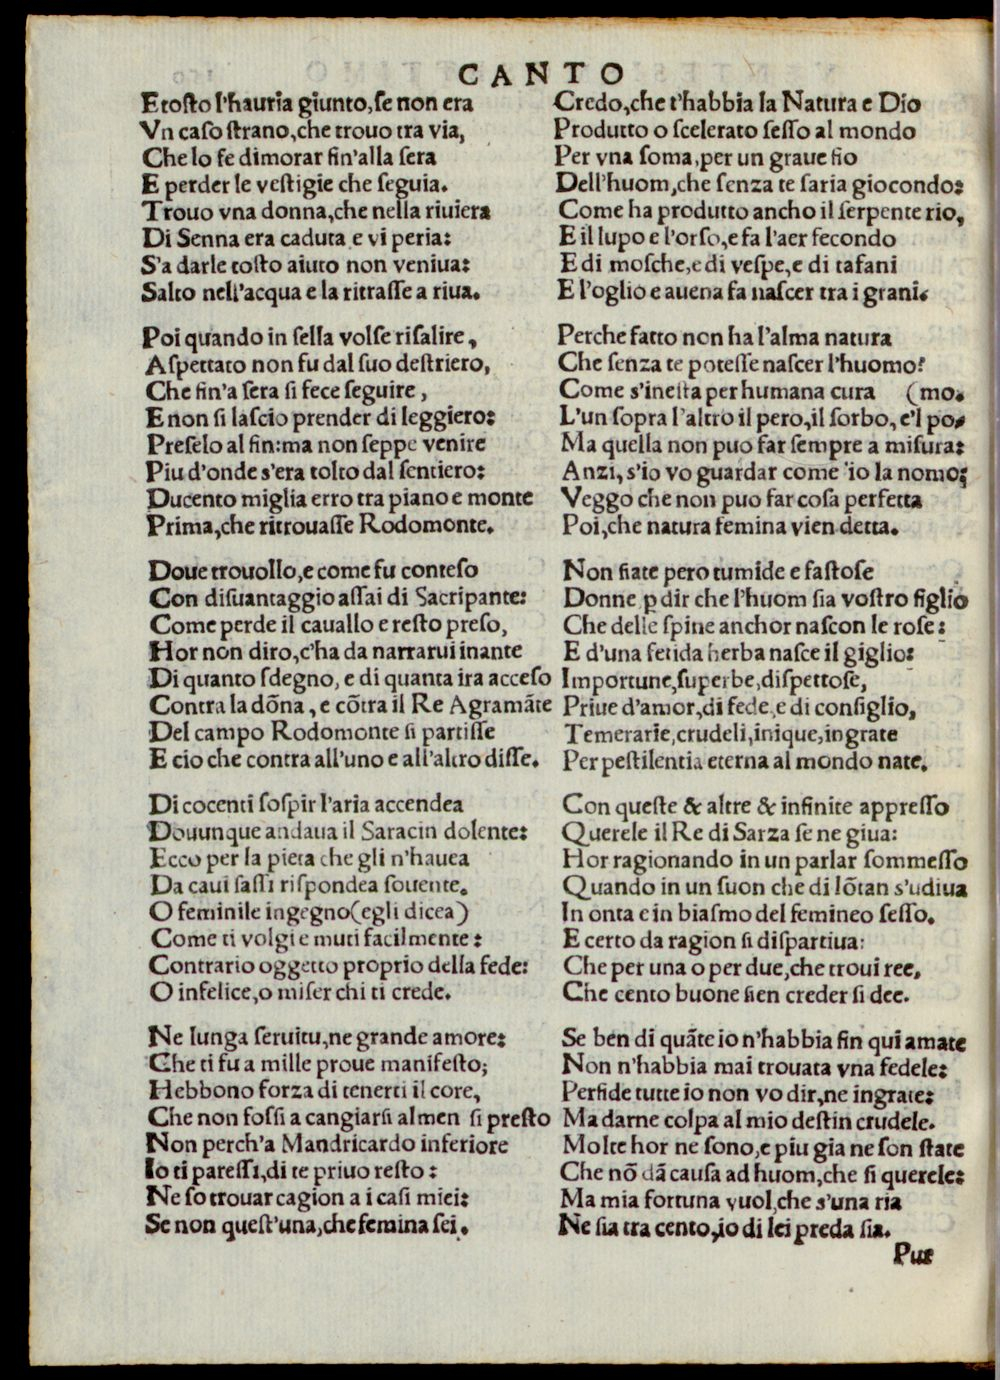 CANTO
E tosto l'hauria giunto, se non era
Vn caso strano, che trouo tra via,
Che lo fe dimorar fin'alla sera
E perder le vestigie che seguia.
Trouo vna donna, che nella riuiera
Di Senna era caduta e vi peria:
S'a darle tosto aiuto non veniua:
Salto nell'acqua e la ritrasse a riua.
Poi quando in sella volse risalire,
Aspettato non fu dal suo destriero,
Che fin'a sera si fece seguire,
E non si lascio prender di leggiero:
Preselo al fin: ma non seppe venire
Piu d'onde s'era tolto dal sentiero:
Ducento miglia erro tra piano e monte
Prima, che ritrouasse Rodomonte.
Doue trouollo, e come fu conteso
Con disuantaggio assai di Sacripante:
Come perde il cauallo e resto preso,
Hor non diro, c'ha da narrarui inante
Di quanto sdegno, e di quanta ira acceso
Contra la dõna, e cõtra il Re Agramãte
Del campo Rodomonte si partisse
E cio che contra all'uno e all'altro disse.
Di cocenti sospir l'aria accendea
Douunque andaua il Saracin dolente:
Ecco per la pieta che gli n'hauea
Da caui sassi rispondea souente.
O feminile ingegno (egli dicea)
Come ti volgi e muti facilmente:
Contrario oggetto proprio della fede:
O infelice, o miser chi ti crede.
Ne lunga seruitu, ne grande amore:
Che ti fu a mille proue manifesto;
Hebbono forza di tenerti il core,
Che non fossi a cangiarsi almen si presto
Non perch'a Mandricardo inferiore
Io ti paressi, di te priuo resto:
Ne so trouar cagion a i casi miei:
Se non quest'una, che femina sei.
Credo, che t'habbia la Natura e Dio
Produtto o scelerato sesso al mondo
Per vna soma, per un graue fio
Dell'huom, che senza te saria giocondo:
Come ha produtto ancho il serpente rio,
E il lupo e l'orso, e fa l'aer fecondo
E di mosche, e di vespe, e di tafani
E l'oglio e auena fa nascer tra i grani.
Perche fatto non ha l'alma natura
Che senza te potesse nascer l'huomo?
Come s'inesta per humana cura (mo.
L'un sopra l'altro il pero, il sorbo, e'l po-
Ma quella non puo far sempre a misura:
Anzi, s'io vo guardar come io la nomo;
Veggo che non puo far cosa perfetta
Poi, che natura femina vien detta.
Non siate pero tumide e fastose
Donne ꝑ dir che l'huom sia vostro figlio
Che delle spine anchor nascon le rose:
E d'una fetida herba nasce il giglio:
Importune, superbe, dispettose,
Priue d'amor, di fede, e di consiglio,
Temerarie, crudeli, inique, ingrate
Per pestilentia eterna al mondo nate.
Con queste & altre & infinite appresso
Querele il Re di Sarza se ne giua:
Hor ragionando in un parlar sommesso
Quando in un suon che di lõtan s'udiua
In onta e in biasmo del femineo sesso.
E certo da ragion si dispartiua:
Che per una o per due, che troui ree,
Che cento buone sien creder si dee.
Se ben di quãte io n'habbia fin qui amate
Non n'habbia mai trouata vna fedele:
Perfide tutte io non vo dir, ne ingrate:
Ma darne colpa al mio destin crudele.
Molte hor ne sono, e piu gia ne son state
Che nõ dã causa ad huom, che si querele:
Ma mia fortuna vuol, che s'una ria
Ne sia tra cento, io di lei preda sia.
Pur